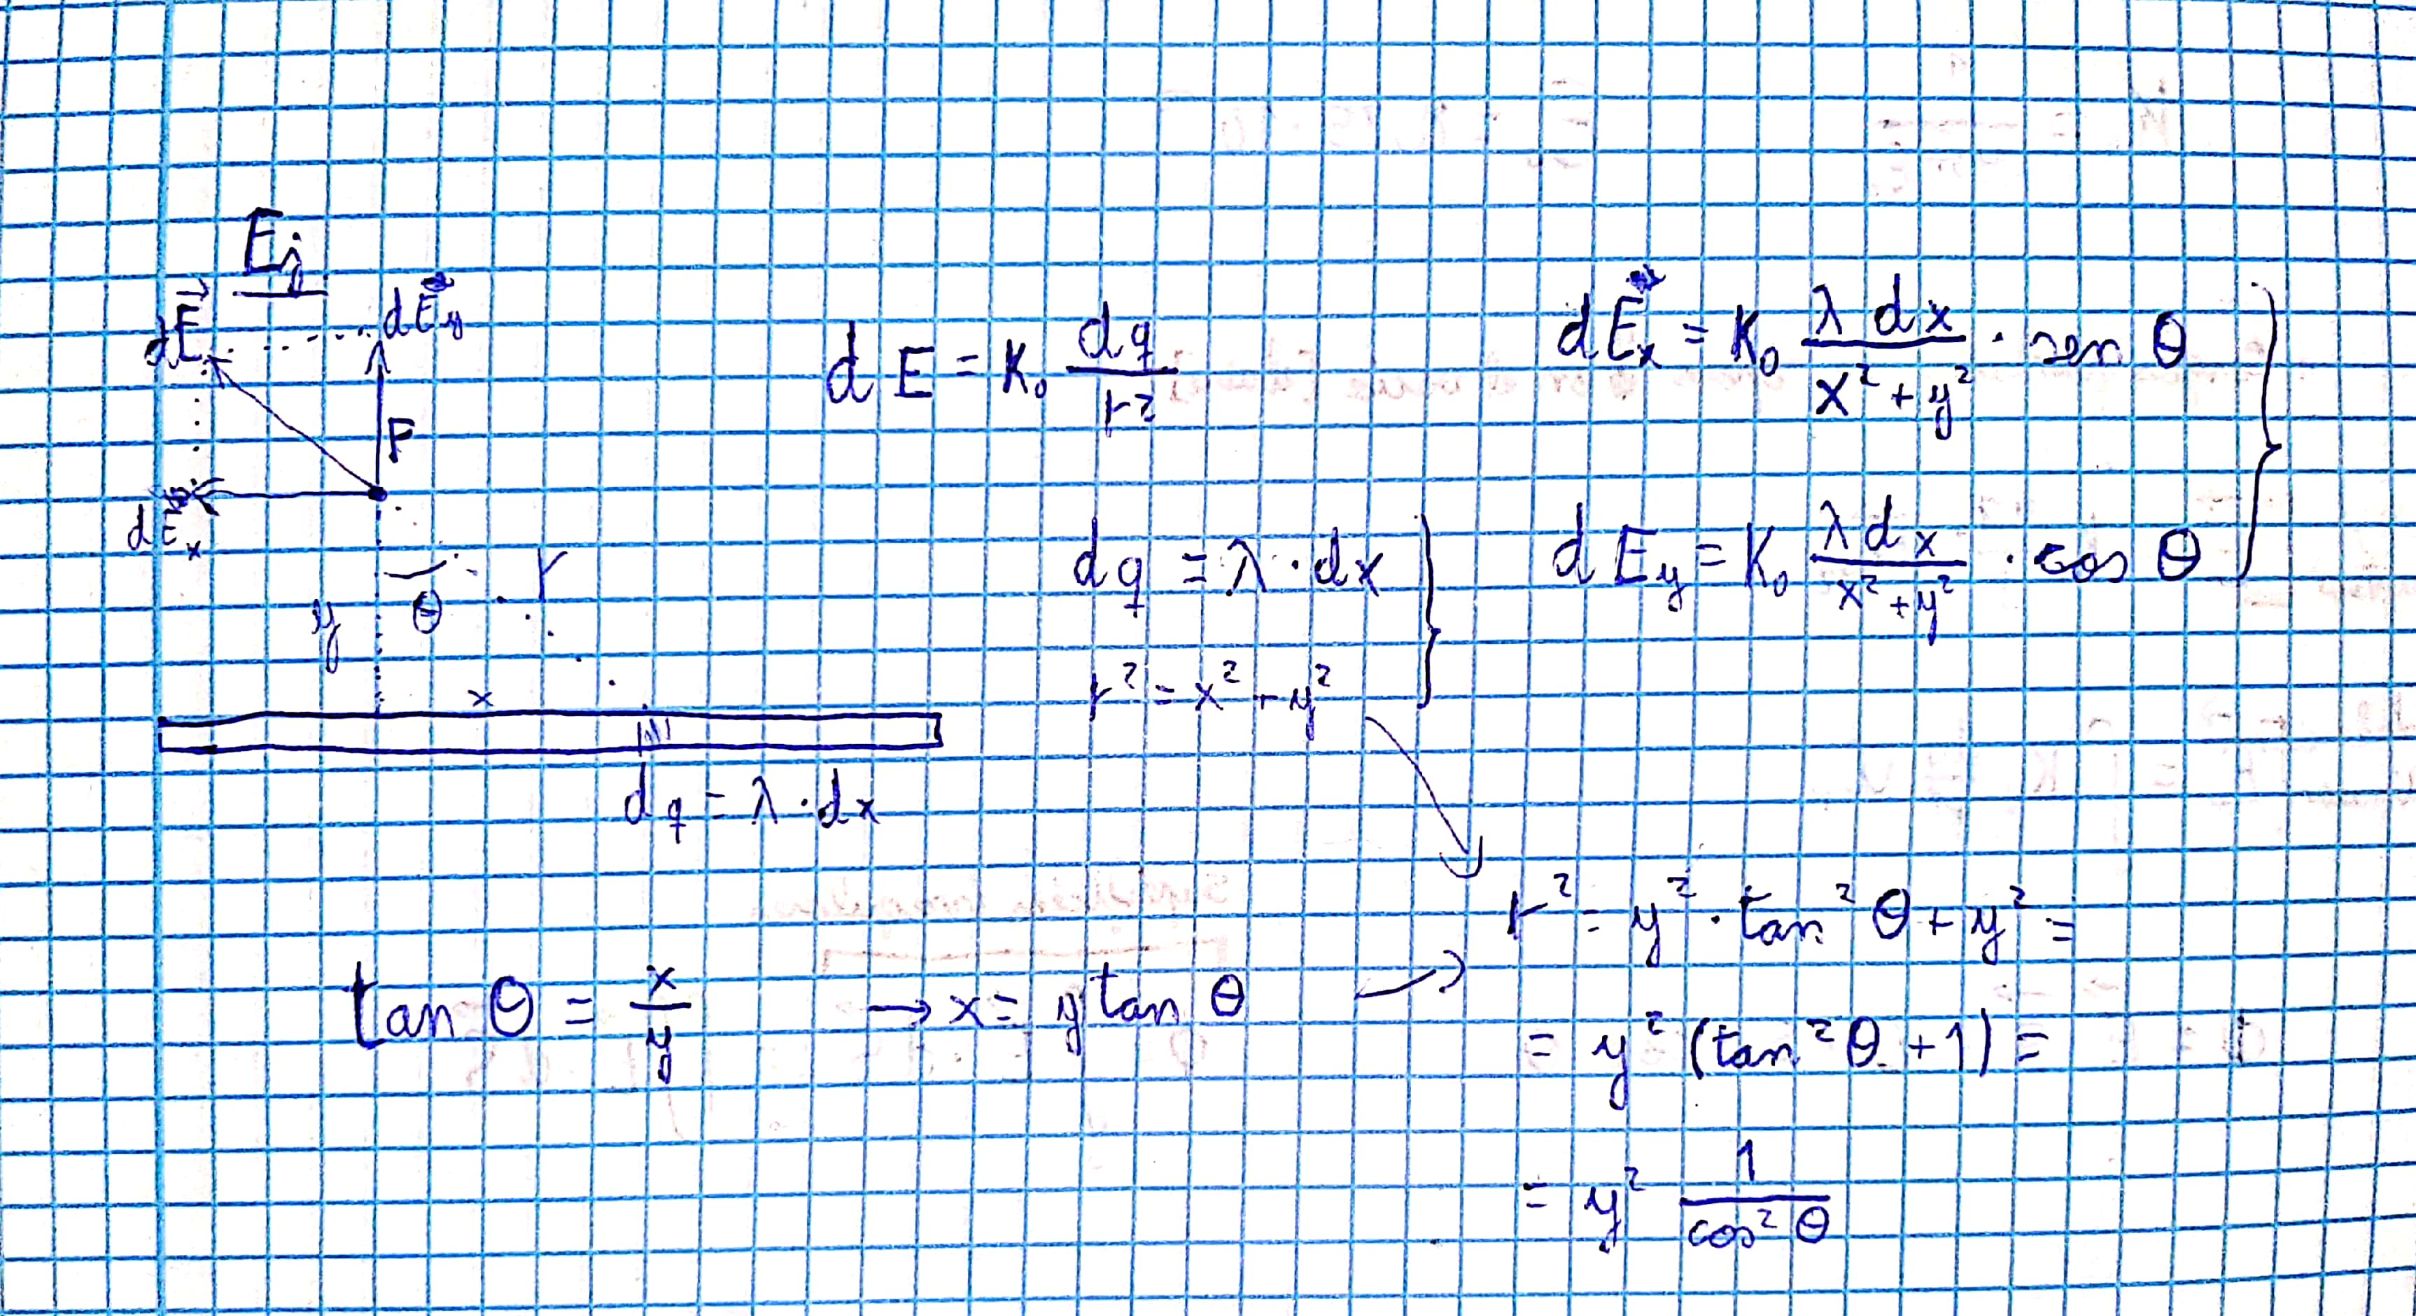 Ej
dE⃗
dE_y
P
dE_x
y
θ
r
x
dq = λ · dx
dE = K₀ dq / r²
dq = λ · dx
r² = x² + y²
dE_x = K₀ λ dx / x² + y² · sen θ
dE_y = K₀ λ dx / x² + y² · cos θ
tan θ = x / y → x = y tan θ
r² = y² · tan² θ + y² =
= y² (tan² θ + 1) =
= y² 1 / cos² θ